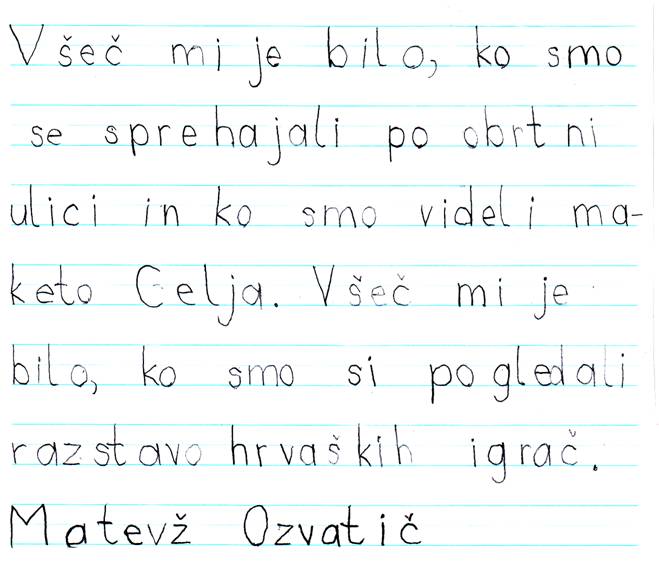 Všeč mi je bilo, ko smo
se sprehajali po obrtni
ulici in ko smo videli ma-
keto Celja. Všeč mi je
bilo, ko smo si pogledali
razstavo hrvaških igrač.
Matevž Ozvatič